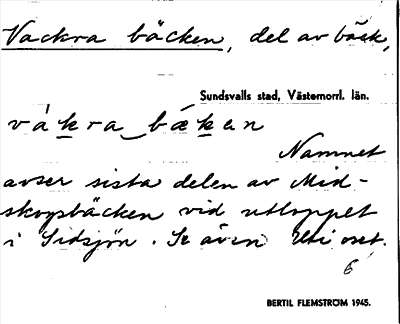 Vackra bäcken, del av bäck,
Sundsvalls stad, Västernorrl. län.
vákra bæken
Namnet
avser sista delen av Mid-
skogsbäcken vid utloppet
i Sidsjön. Se även Uti oset.
6
BERTIL FLEMSTRÖM 1945.